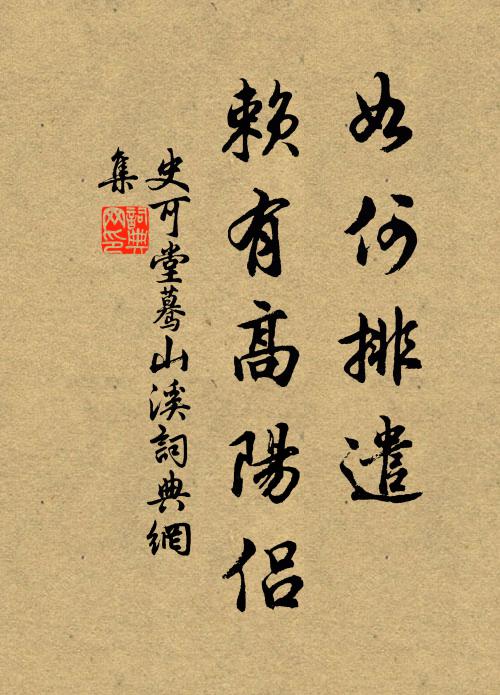 如何排遣
賴有高陽侶
史可堂驀山溪詞典網
集
詞典網印